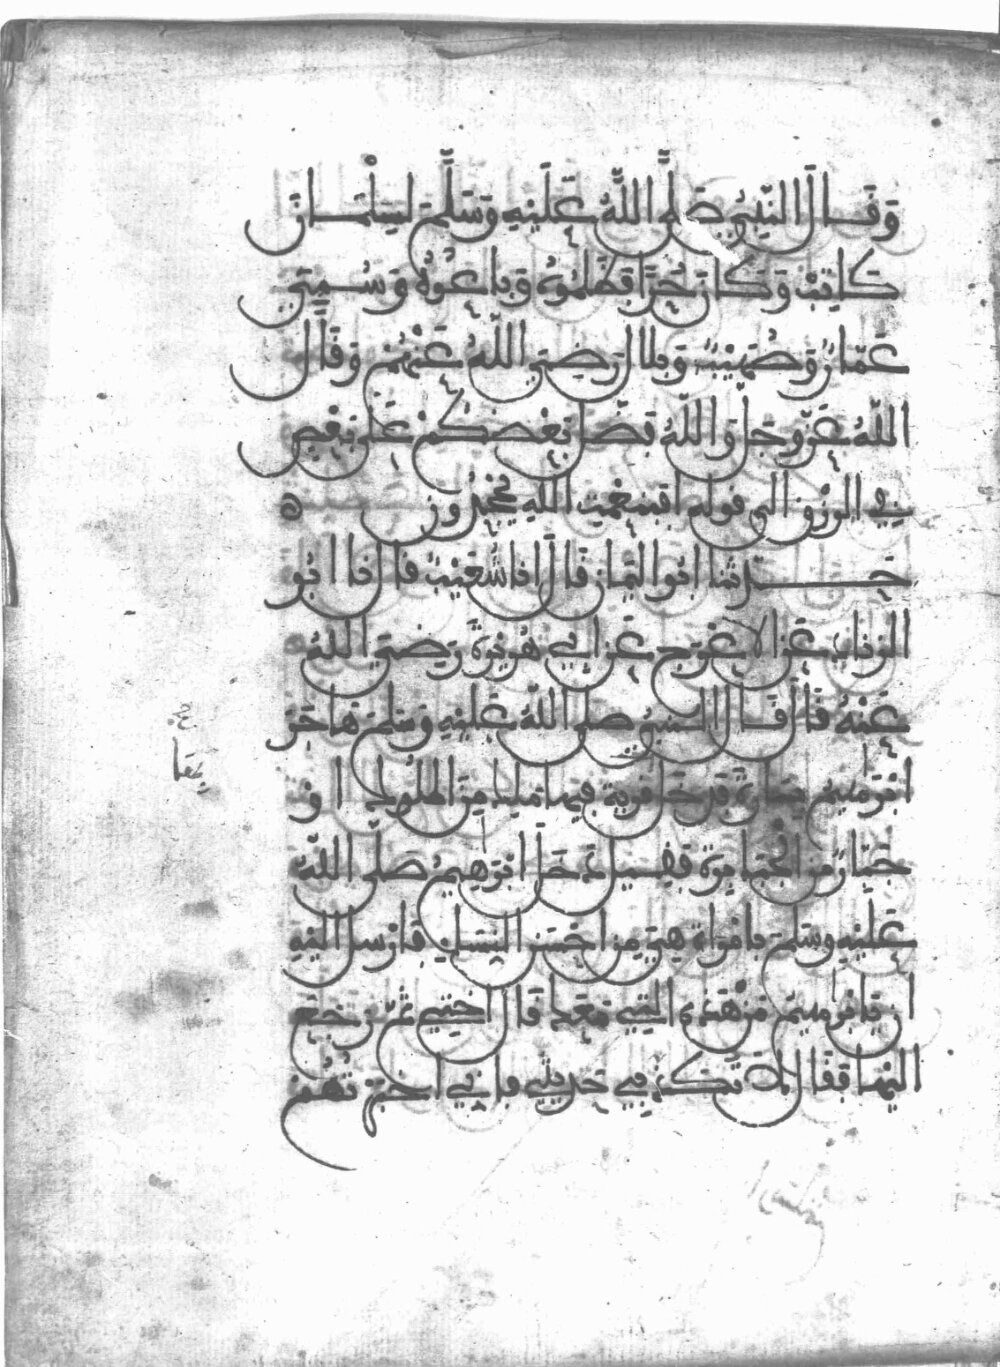 وَقَالَ النَّبِيُّ صَلَّى اللَّهُ عَلَيْهِ وَسَلَّمَ لِسَلْمَانَ
كَاتِبْ وَكَانَ حُرًّا فَظَلَمُوهُ وَبَاعُوهُ وَسُبِيَ
عَمَّارٌ وَصُهَيْبٌ وَبِلَالٌ رَضِيَ اللَّهُ عَنْهُمْ وَقَالَ
اللَّهُ عَزَّ وَجَلَّ وَاللَّهُ فَضَّلَ بَعْضَكُمْ عَلَى بَعْضٍ
فِي الرِّزْقِ إلى قوله أَفَبِنِعْمَةِ اللَّهِ يَجْحَدُونَ
حَدَّثَنَا أَبُو الْيَمَانِ قَالَ أَنَا شُعَيْبٌ قَالَ أَنَا أَبُو
الزِّنَادِ عَنِ الْأَعْرَجِ عَنْ أَبِي هُرَيْرَةَ رَضِيَ اللَّهُ
عَنْهُ قَالَ قَالَ النَّبِيُّ صَلَّى اللَّهُ عَلَيْهِ وَسَلَّمَ هَاجَرَ
إِبْرَهِيمُ بِسَارَةَ فَدَخَلَ قَرْيَةً فِيهَا مَلِكٌ مِنَ الْمُلُوكِ أَوْ
جَبَّارٌ مِنَ الْجَبَابِرَةِ فَقِيلَ دَخَلَ إِبْرَهِيمُ صَلَّى اللَّهُ
عَلَيْهِ وَسَلَّمَ بِامْرَأَةٍ هِيَ مِنْ أَحْسَنِ النِّسَاءِ فَأَرْسَلَ إِلَيْهِ
أَنْ يَا إِبْرَهِيمُ مَنْ هَذِهِ الَّتِي مَعَكَ قَالَ أُخْتِي ثُمَّ رَجَعَ
إِلَيْهَا فَقَالَ لَا تُكَذِّبِي حَدِيثِي فَإِنِّي أَخْبَرْتُهُمْ